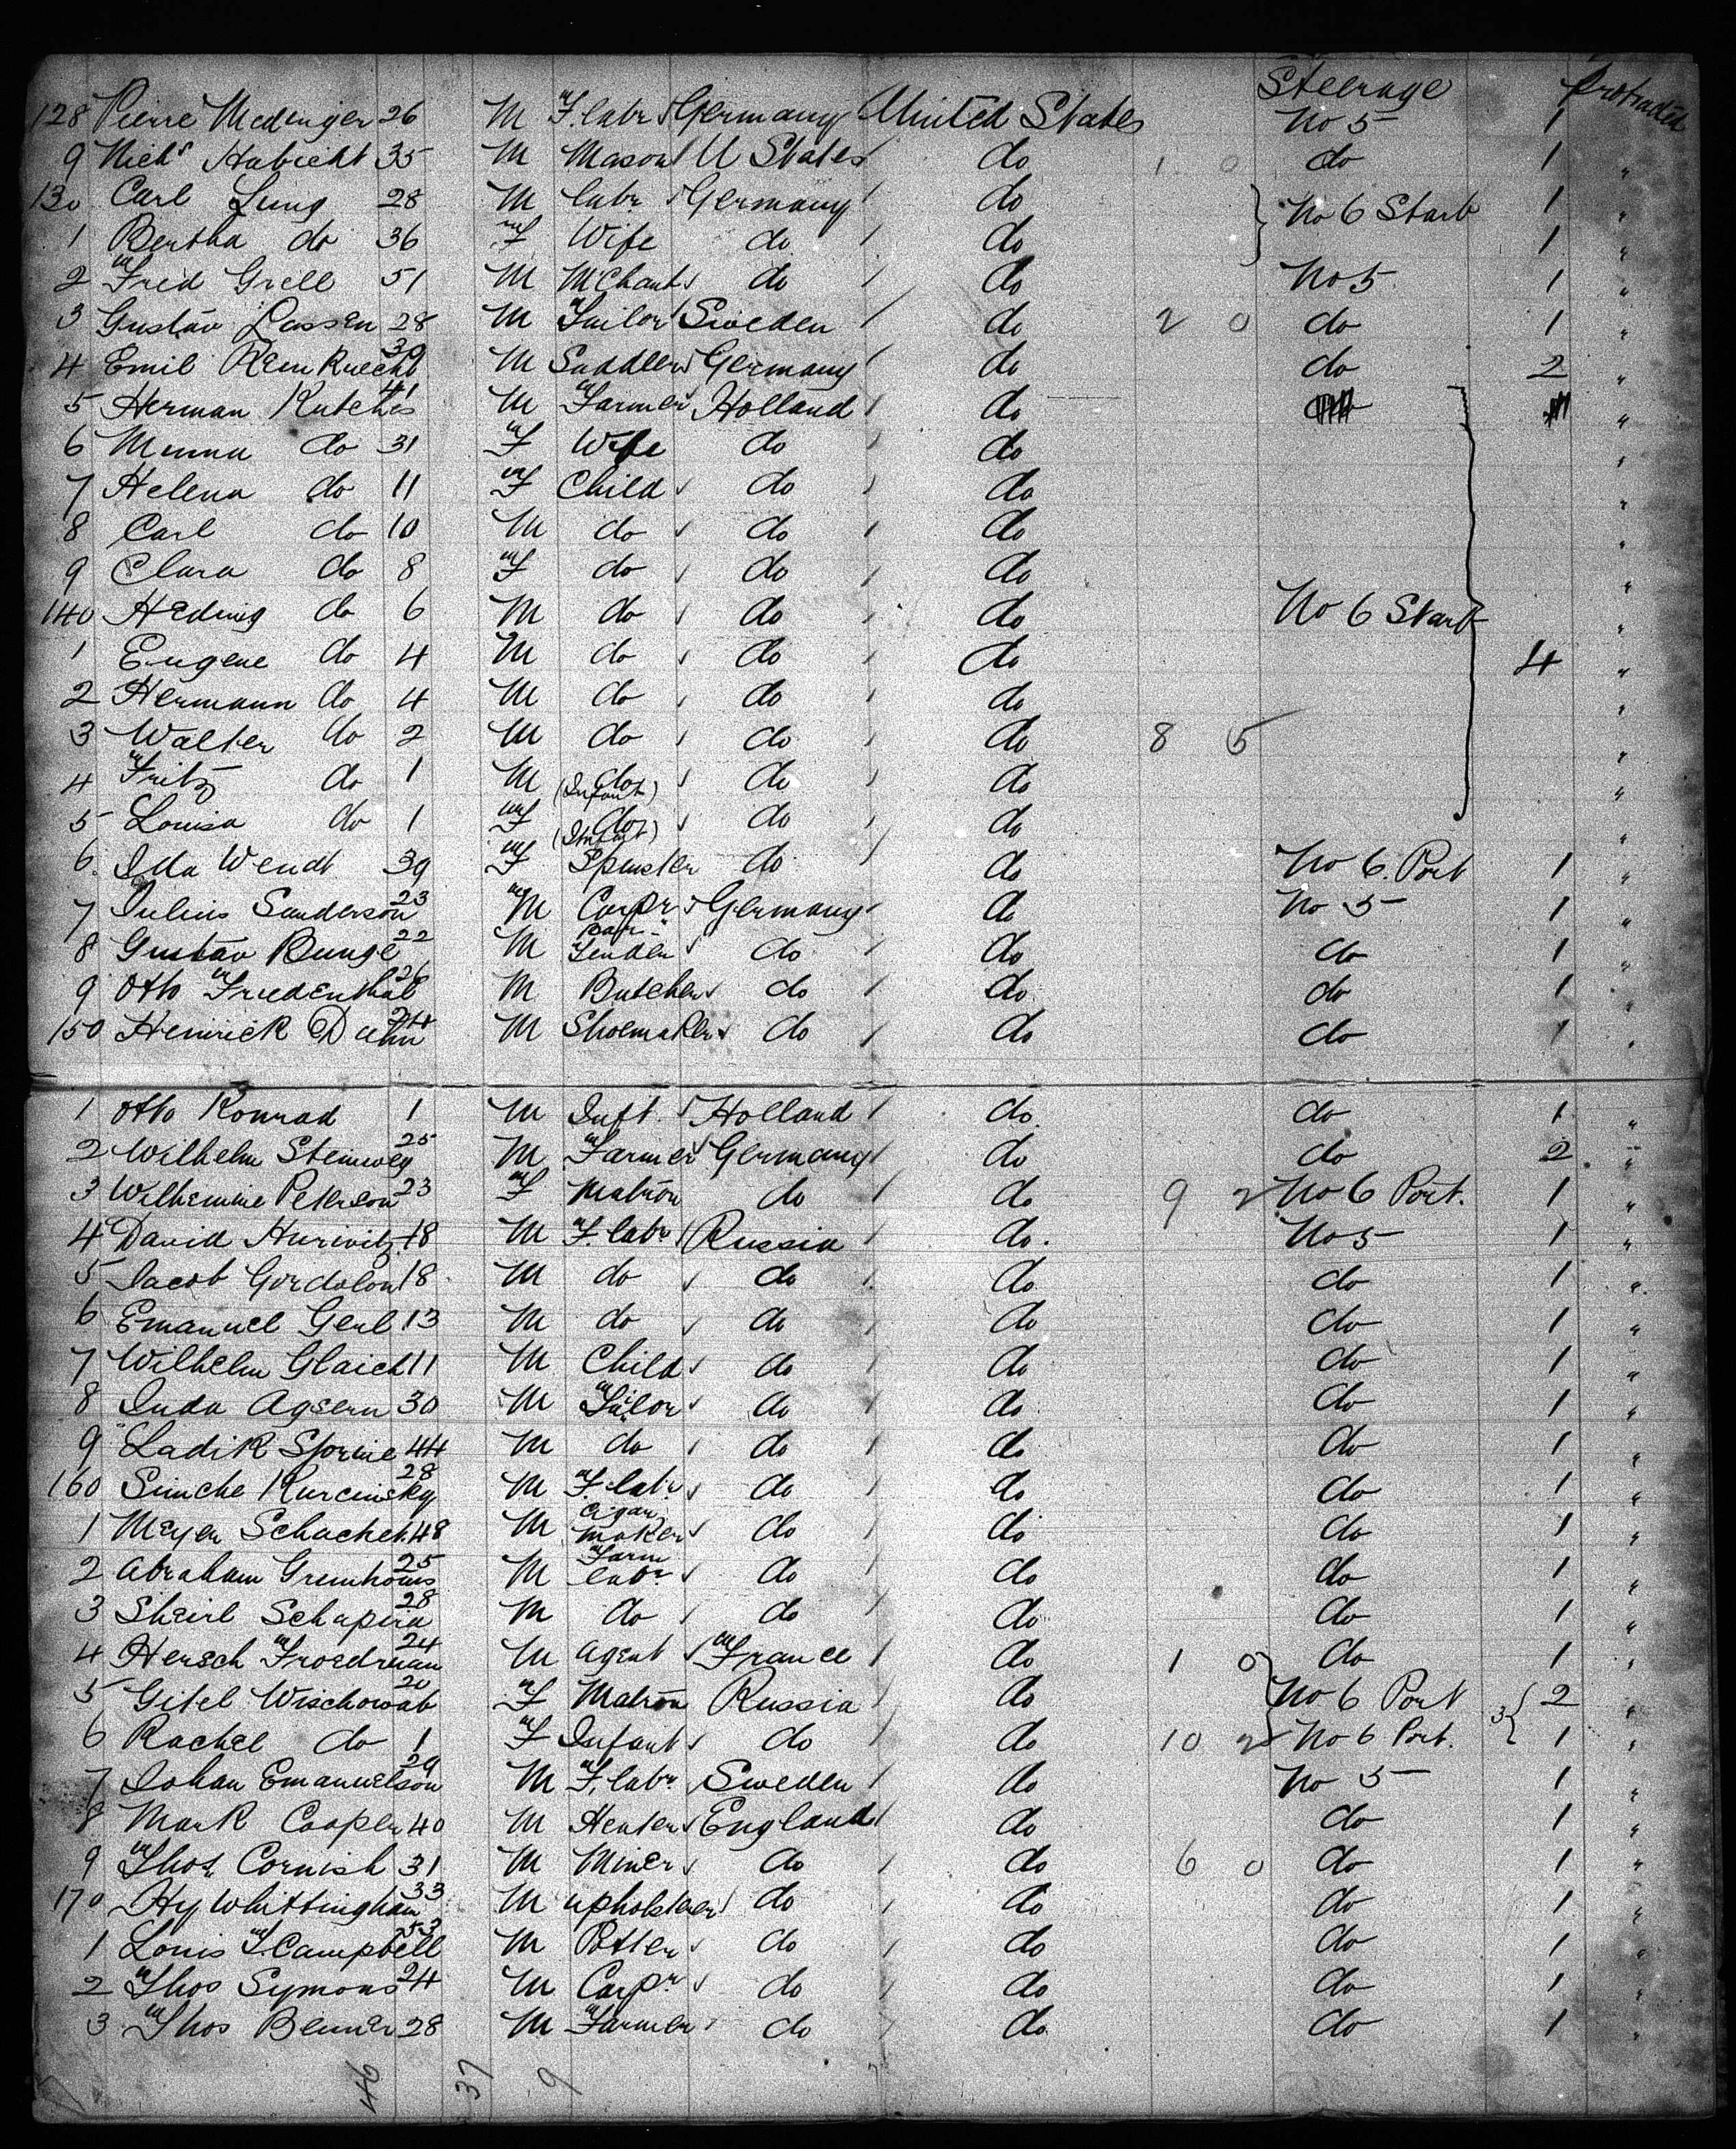 Steerage Protracted
128 Pierre Medinger 26 M F. labr Germany United States No 5 1
9 Nichs Habicht 35 M Mason U States do 1 0 do 1 "
130 Carl Lung 28 M labr Germany do No 6 Starb 1 "
1 Bertha do 36 F Wife do do 1 "
2 Fred Grell 51 M Mchant do do No 5 1 "
3 Gustav Lassen 28 M Tailor Sweden do 2 0 do 1 "
4 Emil 30 M Saddler Germany do do 2 "
5 Herman Kutches 41 M Farmer Holland do "
6 Minna do 31 F Wife do do "
7 Helena do 11 F Child do do "
8 Carl do 10 M do do do "
9 Clara do 8 F do do do "
140 Hedwig do 6 M do do do No 6 Starb "
1 Eugene do 4 M do do do 4 "
2 Hermann do 4 M do do do "
3 Walter do 2 M do do do 8 5 "
4 Fritz do 1 M do (Infant) do do "
5 Louisa do 1 F do (Infant) do do "
6 Ida Wendt 39 F Spinster do do No 6 Port 1 "
7 Julius Sanderson 23 M Carpr Germany do No 5 1 "
8 Gustav Bunge 22 M Bar-Tender do do do 1 "
9 Otto Friedenthal 26 M Butcher do do do 1 "
150 Heinrick Duhn 24 M Shoemaker do do do 1 "
1 Otto Konrad 1 M Inft. Holland do do 1 "
2 Wilhelm Steinweg 25 M Farmer Germany do do 2 "
3 Wilhemine Peterson 23 F Matron do do 9 2 No 6 Port. 1 "
4 David Hurivitz 18 M F labr Russia do. No 5 1 "
5 Jacob Gordolon 18 M do do do do 1 "
6 Emanuel Gerl 13 M do do do do 1 "
7 Wilhelm Glaich 11 M Child do do do 1 "
8 Juda Agsern 30 M Tailor do do do 1 "
9 Ladik 44 M do do do do 1 "
160 Simche Kurcinsky 28 M F. labr do do do 1 "
1 Meyer Schachet 48 M Cigar maker do do do 1 "
2 Abraham 25 M Farm labr do do do 1 "
3 Schapira 28 M do do do do 1 "
4 Hersch Froedman 24 M Agent France do 1 0 do 1 "
5 Gitel Wischowab 20 F Matron Russia do No 6 Port 3 2 "
6 Rachel do 1 F Infant do do 10 2 No 6 Port. 1 "
7 Johan Emanuelson 29 M F. labr Sweden do No 5 1 "
8 Mark Cooper 40 M England do do 1 "
9 Thos Cornish 31 M Miner do do 6 0 do 1 "
170 Hy Whittingham 33 M upholsterer do do do 1 "
1 Louis T Campbell 53 M Potter do do do 1 "
2 Thos Symons 24 M Carpr do do do 1 "
3 Thos Benner 28 M Farmer do do do 1 "
46 37 9